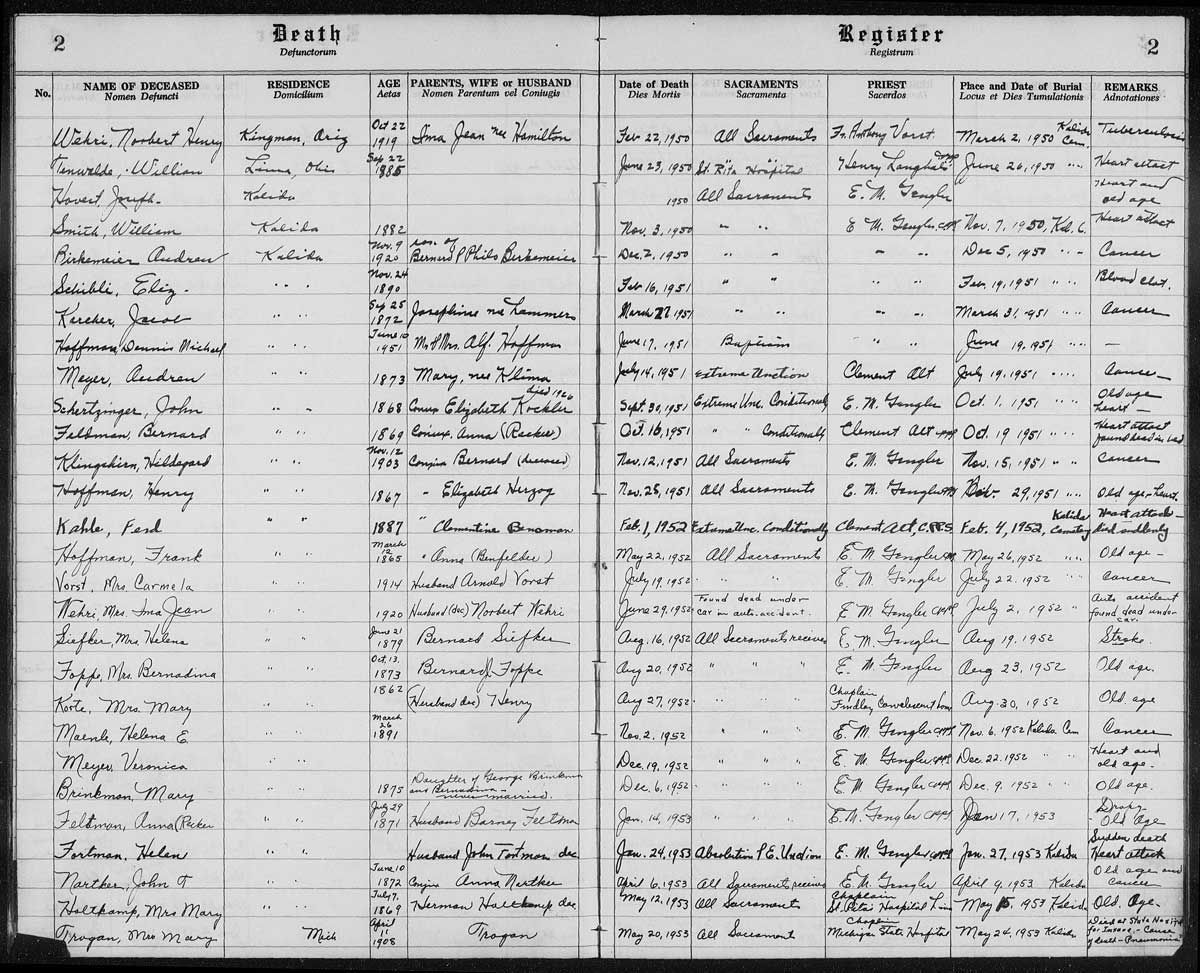 2 Death Register 2
Defunctorum Registrum
No. NAME OF DECEASED RESIDENCE AGE PARENTS, WIFE or HUSBAND Date of Death SACRAMENTS PRIEST Place and Date of Burial REMARKS
Nomen Defuncti Domicilium Aetas Nomen Parentum vel Coniugis Dies Mortis Sacramenta Sacerdos Locus et Dies Tumulationis Adnotationes
Wehri, Norbert Henry Kingman, Ariz Oct 22 1919 Ima Jean nee Hamilton Feb 22, 1950 All Sacraments Fr. Anthony Vorst. March 2, 1950 Kalida Cem. Tuberculosis
William Lima, Ohio Sep 22 1885 June 23, 1950 St. Rita Hospital Henry June 26, 1950 " " Heart attact
Hovert, Joseph- Kalida 1950 All Sacraments E. M. Gengler Heart and old age
Smith, William Kalida 1882 Nov. 3, 1950 " " E. M. Gengler, Nov. 7, 1950, Kal. C. Heart attact
Birkemeier Andrew Kalida Nov. 9 1920 son of Bernard P Birkemeier Dec. 2, 1950 " " " " Dec 5, 1950 " " Cancer
Schibli, Eliz- " " Nov. 24 1890 Feb 16, 1951 " " " " Feb. 19, 1951 " " Blood clot.
Karcher, Jacob " " Sep 25 1872 Josephine nee Lammers March 27 1951 " " " " March 31, 1951 " " Cancer
Hoffman, Dennis Michael " " June 10 1951 Mr & Mrs. Alf. Hoffman June 17, 1951 Baptism " " June 19, 1951 " " —
Meyer, Andrew " " 1873 Mary, nee Klima July 14, 1951 Extreme Unction Clement Alt July 19, 1951 " " Cancer
Schertzinger, John " " 1868 Conux Elizabeth Kockler died 1926 Sept. 30, 1951 Extreme Unc. Conditionally E. M. Gengler Oct. 1, 1951 " " Old age heart —
Feldman, Bernard " " 1869 Coniux, Anna (Recker) Oct. 16, 1951 " " Conditionally Clement Alt Oct. 19 1951 " " Heart attact found dead in bed
Klingshirn, Hildegard " " Nov. 12 1903 Bernard (deceased) Nov. 12, 1951 All Sacraments E. M. Gengler Nov. 15, 1951 " " Cancer
Hoffman, Henry " " 1867 " Elizabeth Herzog Nov. 25, 1951 All Sacraments E. M. Gengler 29, 1951 " " Old age - heart.
Kahle, Ferd " " 1887 " Clementine Feb. 1, 1952 Extreme Unc. Conditionally Clement Alt, C.PP.S Feb. 4, 1952, Kalida Cemetery Heart attack - died suddenly
Hoffman, Frank " " March 12 1865 " Anna (Benfelder) May 22, 1952 All Sacrament E. M. Gengler May 26, 1952 " " Old age -
Vorst, Mrs. Carmela " " 1914 Husband Arnold Vorst July 19, 1952 " " E. M. Gengler July 22, 1952 " " Cancer
Wehri, Mrs. Ima Jean " " 1920 Husband (dec) Norbert Wehri June 29, 1952 Found dead under car in auto. accident. E M Gengler July 2, 1952 " Auto accident found dead under car.
Siefker, Mrs Helena " " June 21 1879 Bernard Siefker Aug. 16, 1952 All Sacraments receives E. M. Gengler Aug 19. 1952 Stroke.
Foppe, Mrs. Bernadina " " Oct. 13. 1873 Bernard J. Foppe Aug 20, 1952 " " " E. M. Gengler Aug 23, 1952 Old age.
Korte, Mrs. Mary " " 1862 (Husband dec) Henry Aug 27, 1952 " " " Chaplain Findlay Convalescent home Aug. 30, 1952 Old age
Helena E. " " March 26 1891 Nov. 2, 1952 " " " E. M. Gengler Nov. 6, 1952 Kalida Cem Cancer
Meyer, Veronica " " Dec. 19, 1952 " " " E. M. Gengler Dec. 22, 1952 " " Heart and old age.
Brinkman, Mary " " 1875 Daughter of George Brinkman and Bernadina - never married. Dec. 6, 1952 " " " E M Gengler Dec. 9, 1952 " Old age.
Feltman, Anna (Recker " " July 29 1871 Husband Barney Feltman Jan. 14, 1953 " " " E. M. Gengler Jan 17, 1953 Dropsy - Old Age
Fortman, Helen " " Husband John Fortman dec Jan. 24, 1953 Absolution & E. Unction E. M. Gengler Jan. 27, 1953 Kalida Sudden death Heart attack
Nartker, John T " " June 10 1872 Anna Nartker April 6, 1953 All Sacraments receives E M Gengler April 9, 1953 Kalida Old age and cancer
Holtkamp, Mrs Mary " " July 7, 1869 Herman Holtkamp dec May 12, 1953 All Sacraments Chaplain St. Rita's Hospital Lima May 15, 1953 Kalida Old. Age.
Trogan, Mrs Mary Mich April 11 1908 Trogan May 20, 1953 All Sacrament Michigan State Hospital May 24, 1953 Kalida Died at State Hospital for Insane. - Cause of death - Pneumonia